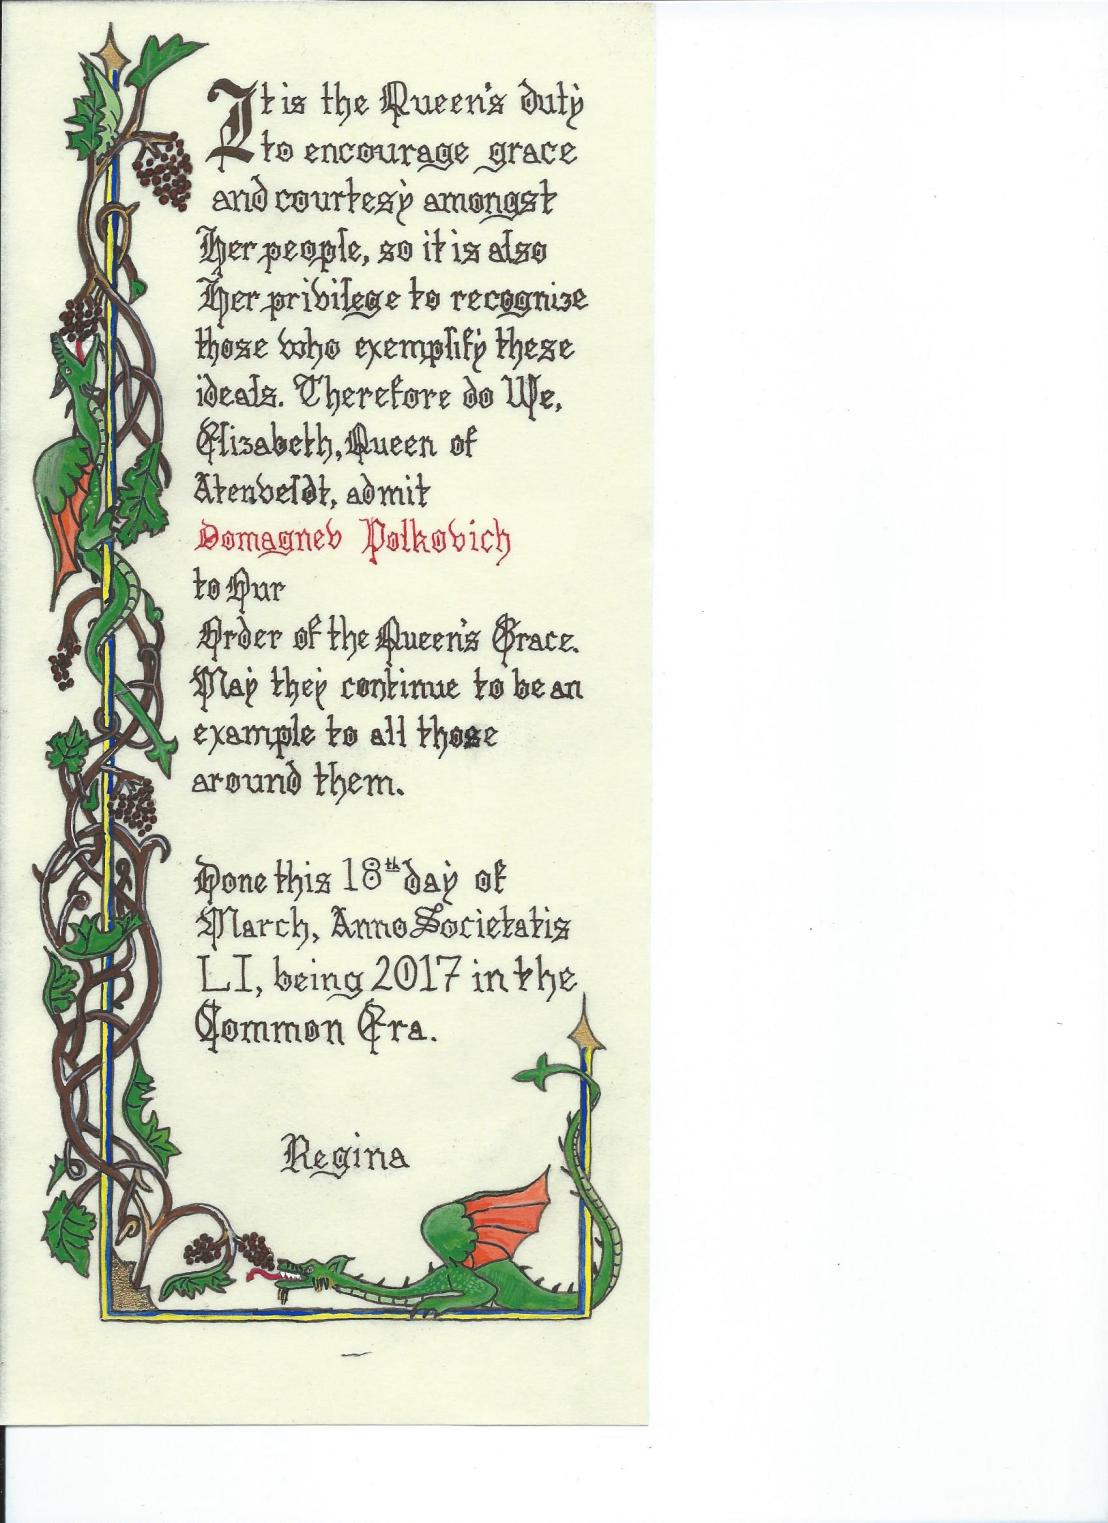 It is the Queen's duty
to encourage grace
and courtesy amongst
Her people, so it is also
Her privilege to recognize
those who exemplify these
ideals. Therefore do We,
Elizabeth, Queen of
Atenveldt, admit
Domagnev Polkovich
to Our
Order of the Queen's Grace.
May they continue to be an
example to all those
around them.
Done this 18th day of
March, Anno Societatis
LI, being 2017 in the
Common Era.
Regina